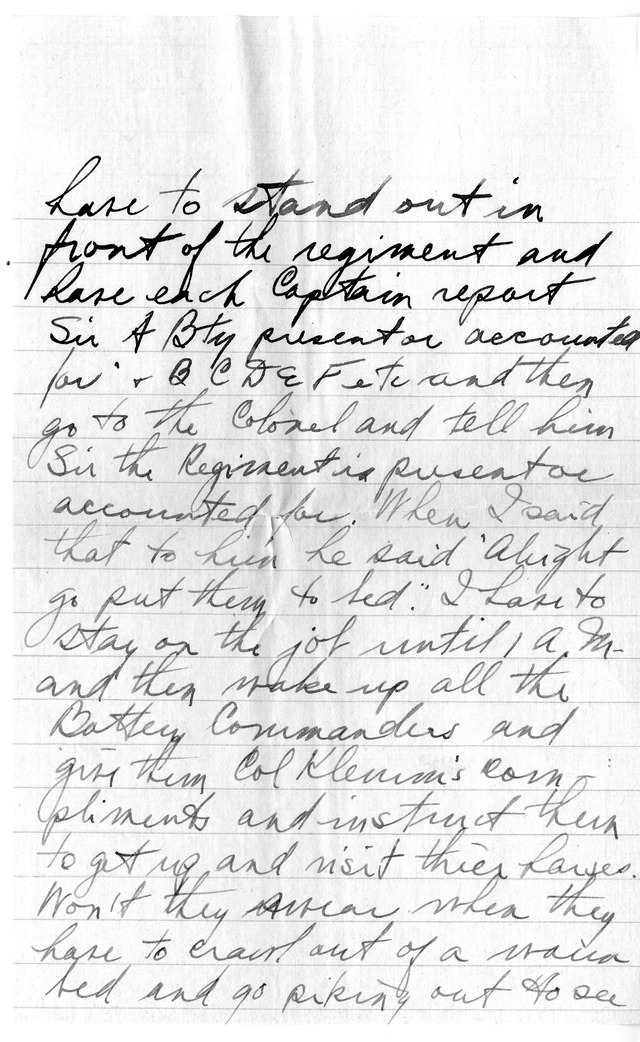 have to stand out in
front of the regiment and
have each Captain report
Sir A Bty present or accounted
for" + B C D E F etc and then
go to the Colonel and tell him
Sir the Regiment is present or
accounted for. When I said
that to him he said "Alright
go put them to bed." I have to
stay on the job until 1 A.M-
and then wake up all the
Battery Commanders and
give them Col Klemm's com-
pliments and instruct them
to get up and visit thier horses.
Won't they swear when they
have to crawl out of a warm
bed and go piking out to see